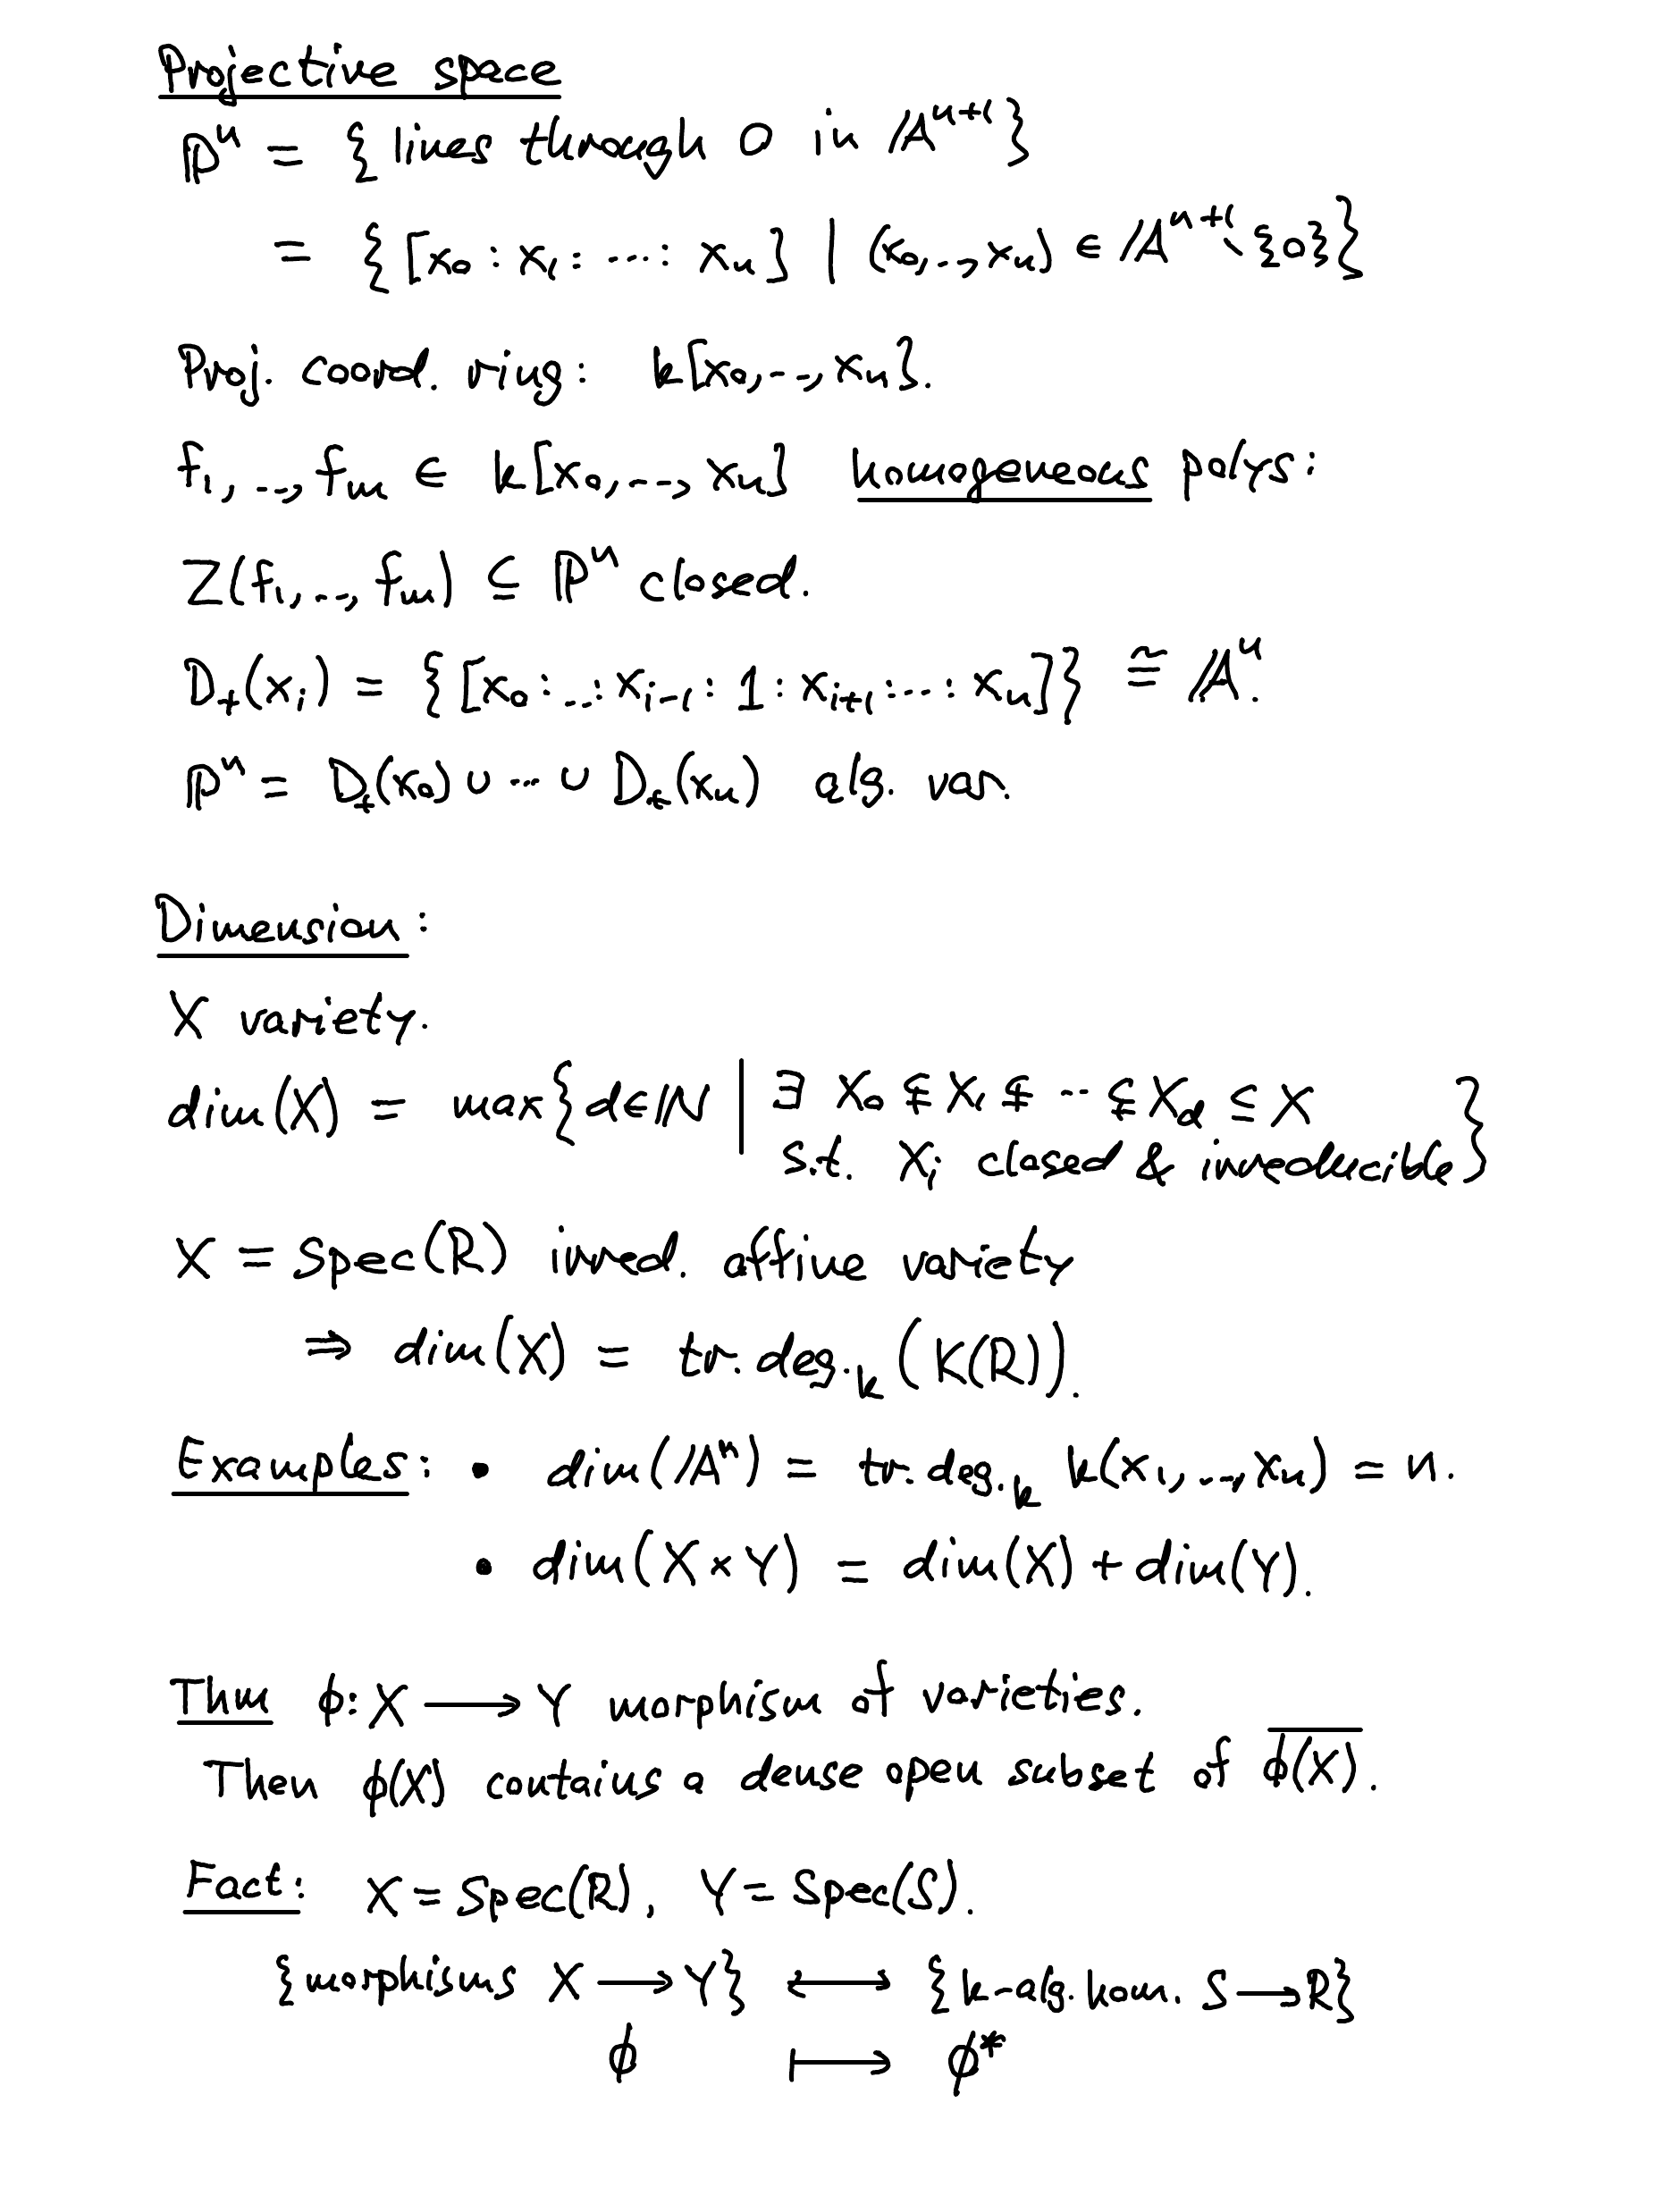 Projective space
ℙⁿ = { lines through 0 in 𝔸ⁿ⁺¹ }
= { [x₀ : x₁ : ⋯ : xₙ] | (x₀,..,xₙ) ∈ 𝔸ⁿ⁺¹∖{0} }
Proj. coord. ring: k[x₀,..,xₙ].
f₁,..,fₘ ∈ k[x₀,..,xₙ] homogeneous polys:
Z(f₁,..,fₘ) ⊆ ℙⁿ closed.
D₊(xᵢ) = { [x₀:..:xᵢ₋₁:1:xᵢ₊₁:..:xₙ] } ≅ 𝔸ⁿ.
ℙⁿ = D₊(x₀) ∪ ⋯ ∪ D₊(xₙ) alg. var.
Dimension:
X variety.
dim(X) = max{ d∈ℕ | ∃ X₀ ⊊ X₁ ⊊ ⋯ ⊊ X_d ⊆ X
s.t. Xᵢ closed & irreducible }
X = Spec(R) irred. affine variety
⇒ dim(X) = tr.deg.ₖ(K(R)).
Examples: • dim(𝔸ⁿ) = tr.deg.ₖ k(x₁,..,xₙ) = n.
• dim(X×Y) = dim(X) + dim(Y).
Thm φ: X ⟶ Y morphism of varieties.
Then φ(X) contains a dense open subset of \overline{φ(X)}.
Fact: X = Spec(R), Y = Spec(S).
{morphisms X ⟶ Y} ⟷ {k-alg. hom. S ⟶ R}
φ ⟼ φ*